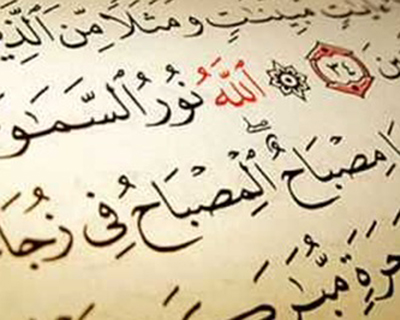 مُّبَيِّنَٰتٍ وَمَثَلًا مِّنَ ٱلَّذِي
ينَ ٣٤ ٱللَّهُ نُورُ ٱلسَّمَٰوَ
ا مِصْبَاحٌ ۖ ٱلْمِصْبَاحُ فِى زُجَا
جَرَةٍ مُّبَٰرَكَ